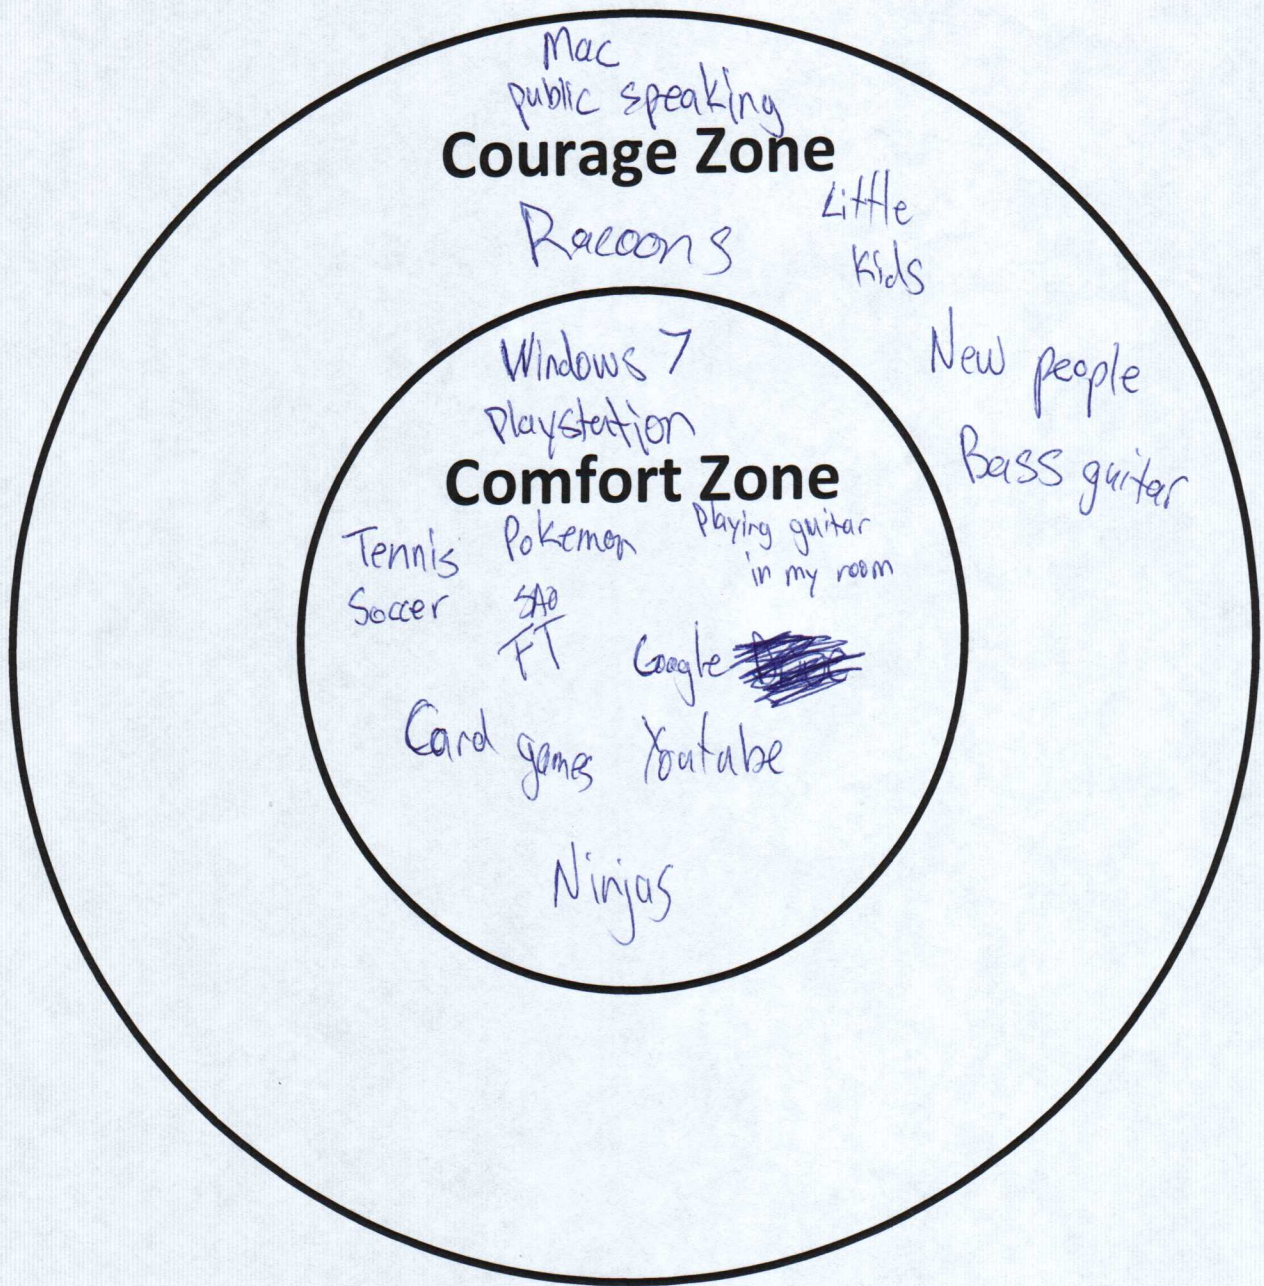 Mac
public speaking
Courage Zone
Little
Kids
Racoons
New people
Bass guitar
Windows 7
Playstation
Comfort Zone
Tennis
Pokemon
Playing guitar
in my room
Soccer
SAO
FT
Google
Card games
Youtube
Ninjas